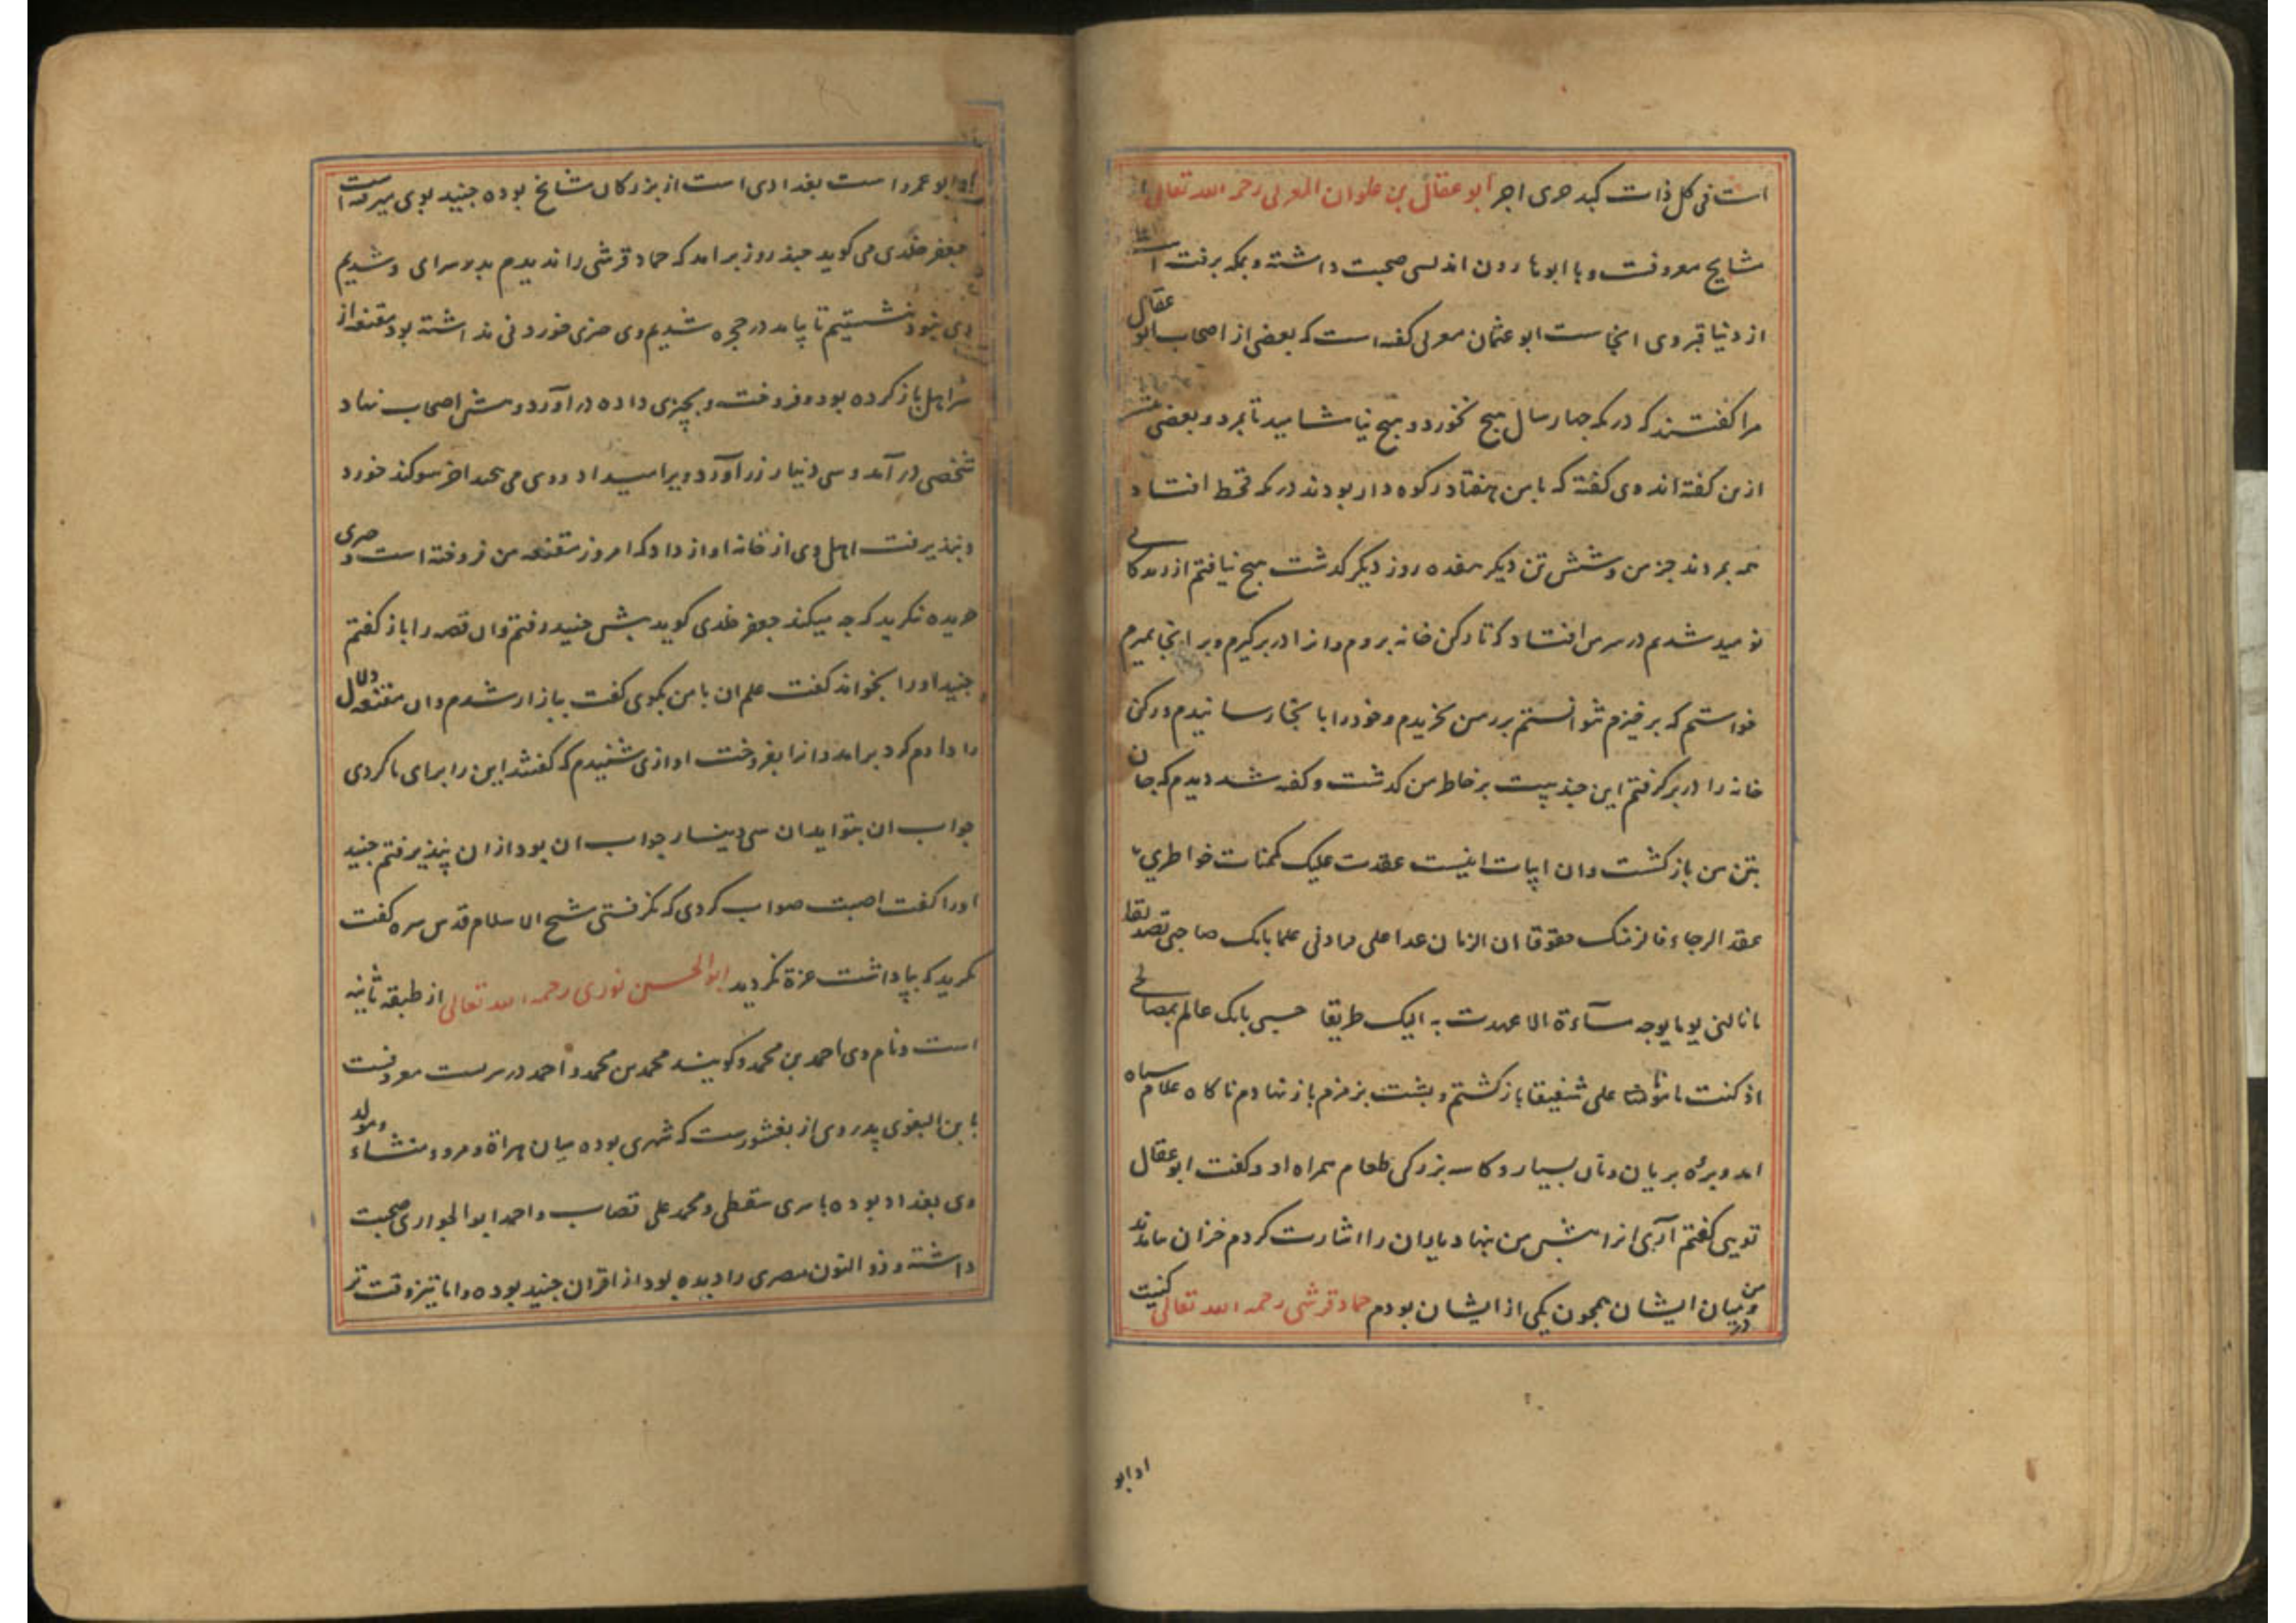 است فی کل ذات کبد حری اجر ابو عقال بن علوان المغربی رحمه الله تعالی
مشایخ معروفست و با ابو هارون اندلسی صحبت داشته و بمکه برفت است
از دنیا قبر وی انجاست ابو عثمان مغربی گفته است که بعضی از اصحاب ابو عقال
مرا گفتند که در مکه چهار سال هیچ نخورد و هیچ نیاشامید تا بمرد و بعضی
از من گفته اند وی گفته که با من هفتاد رکوه دار بودند در مکه قحط افتاد
همه بمردند جز من و شش تن دیگر هفده روز دیگر گذشت هیچ نیافتم از زندگانی
نومید شدم در سر من افتاد که تا رکن خانه بروم و انرا در بر گیرم و بر انجا بمیرم
خواستم که بر خیزم نتوانستم بر زمین بخزیدم و خود را با بنجا رسانیدم و رکن
خانه را در بر گرفتم این چند بیت بر خاطر من گذشت و گفته شد دیدم که جان
بتن من باز گشت و ان ابیات اینست عقدت علیک مکمنات خواطری
عقد الرجاء فالزمنک حقوقا ان الزمان عدا علی فزادنی علما بانک صاحبی تصدیقا
ما نالنی یوما بوجه مساءة الا عهدت به الیک طریقا حسبی بانک عالم بمصالحی
اذ کنت مامونا علی شفیقا باز گشتم و پشت بزمزم باز نهادم ناگاه غلام سیاه
امد و بره بریان و نان بسیار و کاسه بزرگی طعام همراه او و گفت ابو عقال
تویی گفتم آری انرا پیش من نهاد یاران را اشارت کردم خزان بیامدند
و من در میان ایشان همچون یکی از ایشان بودم حماد قرشی رحمه الله تعالی کنیت
او ابو
او ابو عمرو است بغدادی است از بزرگان مشایخ بوده جنید بوی میرفته است
جعفر خلدی می گوید چند روز برامد که حماد قرشی را ندیدم بدر سرای وی شدیم
وی نبود بنشستیم تا بیامد در حجره شدیم وی چیزی خوردنی نداشته بود مقنعه از
سر اهل باز کرده بود و فروخت و بچیزی داده در آورد و پیش اصحاب نهاد
شخصی در آمد و سی دینار زر آورد و ویرا میداد و وی می نستد اخر سوگند خورد
و نپذیرفت اهل وی از خانه اواز داد که امروز مقنعه من فروخته است و چیزی
خریده نگرید که چه میکند جعفر خلدی گوید پیش جنید رفتم و ان قصه را باز گفتم
جنید او را بخواند گفت علم ان با من بگوی گفت ببازار شدم و ان مقنعه دلال
را دادم گرد برامد و انرا بفروخت اوازی شنیدم که گفتند این را برای ما کردی
جواب ان بتو ایدان سی دینار جواب ان بود از ان نپذیرفتم جنید
او را گفت اصبت صواب کردی که نگرفتی شیخ الاسلام قدس سره گفت
نگرید که بپاداشت غره نگردید ابو الحسین نوری رحمه الله تعالی از طبقه ثانیه
است و نام وی احمد بن محمد و گویند محمد بن محمد و احمد درستر است معروفست
با بن البغوی پدر وی از بغشورست که شهری بوده میان هراة و مرو و منشاء و مولد
وی بغداد بوده با سری سقطی و محمد علی قصاب و احمد ابو الحواری صحبت
داشته و ذو النون مصری را دیده بود از اقران جنید بوده و اما تیز وقت تر